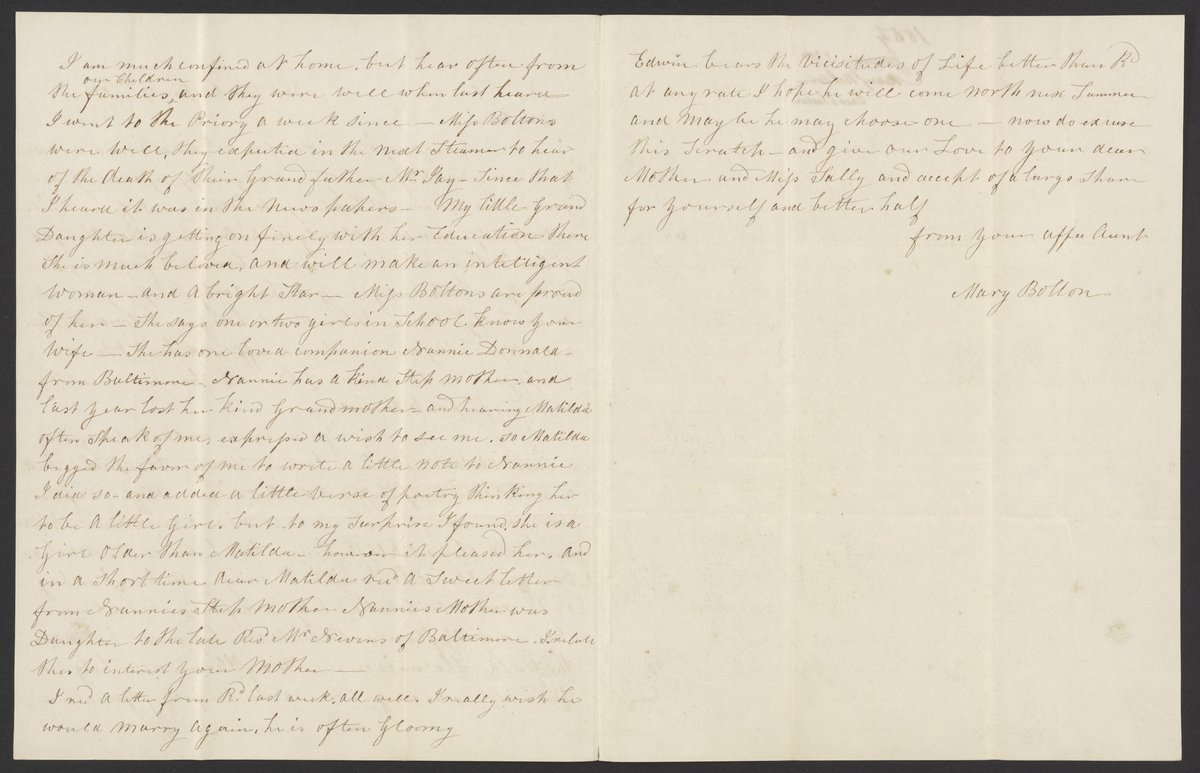 I am much confined at home, but hear often from
our Children
the families, and they were well when last heard
I went to the Priory a week since — Miss Boltons
were well, they expected in the next Steamer to hear
of the death of their Grandfather Mr Jay — Since that
I heard it was in the News papers — My little Grand
Daughter is getting on finely with her Education there
She is much beloved, and will make an intelligent
woman — and a bright Star — Miss Boltons are proud
of her — She says one or two girls in School know your
wife — She has one loved companion Nannie Donnald
from Baltimore. Nannie has a kind Step mother, and
last year lost her kind Grandmother — and hearing Matilda
often speak of me, expressed a wish to see me. so Matilda
begged the favor of me to write a little note to Nannie
I did so — and added a little verse of poetry thinking her
to be a little Girl. but to my surprise I found, she is a
Girl older than Matilda — however it pleased her, and
in a short time dear Matilda recd a sweet letter
from Nannies Step Mother. Nannies Mother was
Daughter to the late Revd Mr Nevens of Baltimore. I relate
this to interest your Mother —
I recd a letter from Rd last week, all well. I really wish he
would marry again, he is often Gloomy
Edwin bears the Vicisitudes of Life better than Rd
at any rate I hope he will come North next Summer
and may be he may choose one — now do excuse
this Scratch — and give our Love to your dear
Mother — and Miss Sally and accept of a large share
for yourself and better half
from your affe Aunt
Mary Bolton